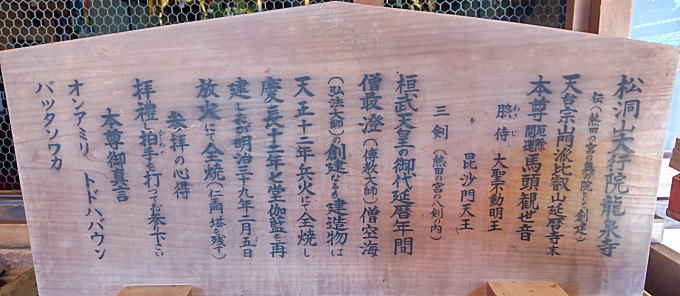 松洞山大行院龍泉寺
伝(熱田の宮の奥院として創建)
天台宗山門派比叡山延暦寺末
本尊 厄除開運 馬頭観世音
脇侍 大聖不動明王
〃 毘沙門天王
三剣(熱田の宮の八剣の内)
桓武天皇の御代延暦年間
僧最澄(傳教大師)僧空海
(弘法大師)の創建なるも建造物は
天正十二年兵火にて全焼し
慶長十二年七堂伽藍を再
建したが明治三十九年一月五日
放火にて全焼(仁王門、塔を残す)
参拝の心得
拝禮し拍手を打つても参り下さい
本尊御真言
オンアミリ トドハバウン
バッタソワカ